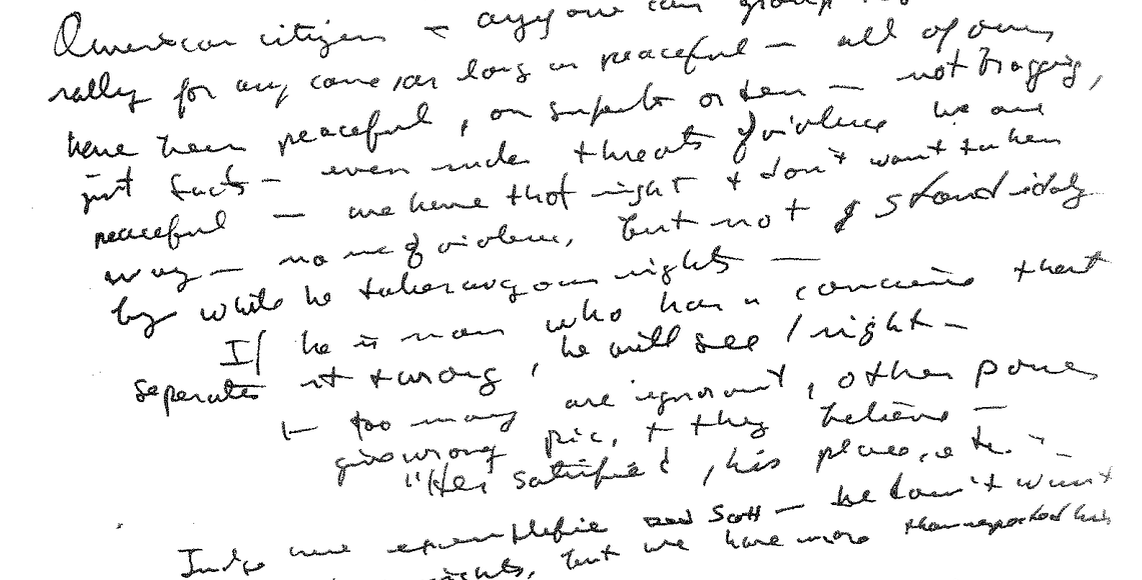 American citizen — anyone can group
rally for any cause, as long as peaceful — all of ours
have been peaceful, on superb order — not bragging,
just facts — even under threats of violence we are
peaceful — we have that right & don't want taken
away — no use of violence, but not stand idly
by while he takes away our rights —
If he is man who has a conscience that
seperates rt & wrong, he will see / right —
too many are ignorant, other power
gives wrong pic, & they believe —
"He's satisfied, his place, etc. —
Judge Scott — he don't want
rights, but we have more than respected his